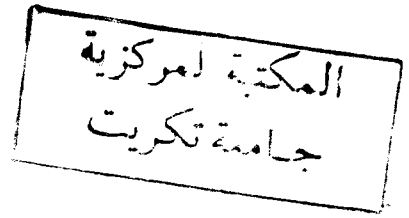 المكتبة المركزية
جامعة تكريت